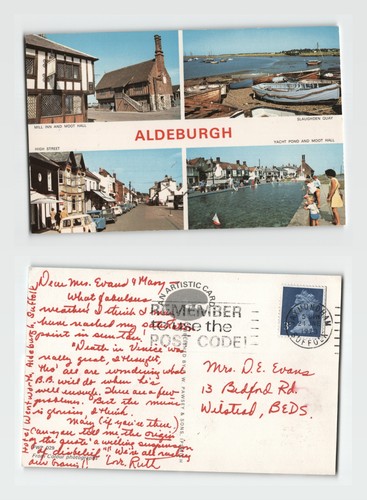 MILL INN AND MOOT HALL
SLAUGHDEN QUAY
ALDEBURGH
HIGH STREET
YACHT POND AND MOOT HALL
Dear Mrs. Evans & Mary,
What fabulous
weather I think I must
have reached my
point in sun tan,
"Death in Venice" was
really great, I thought,
Yes! all are wondering what
B.B. will do when he's
well enough. There are a few
problems. But the music
is glorious, I think.
Mary (if you're there)
Can you tell me the origins
of the quote "a willing suspension
of disbelief" We're all racking
our brains!! Love, Ruth
Hotel Wentworth, Aldeburgh, Suffolk
AN ARTISTIC CARD
REMEMBER
to use the
POST CODE!
SUFFOLK
Mrs. D.E. Evans
13 Bedford Rd
Wilstead, BEDS.